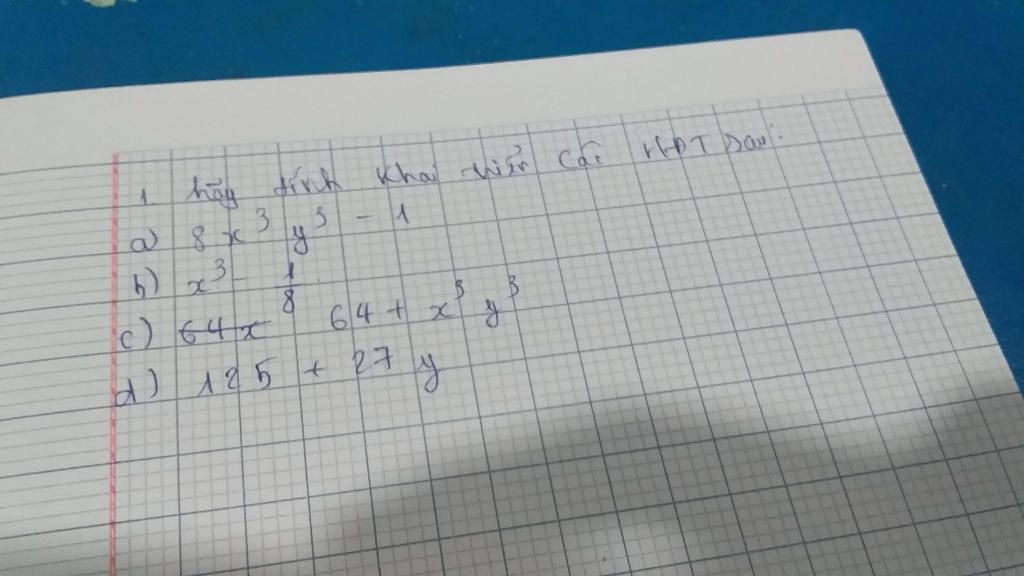 1. hãy tính khai triển các HĐT sau:
a) 8x³y³ - 1
b) x³ - 1/8
c) 64 + x³y³
d) 125 + 27y